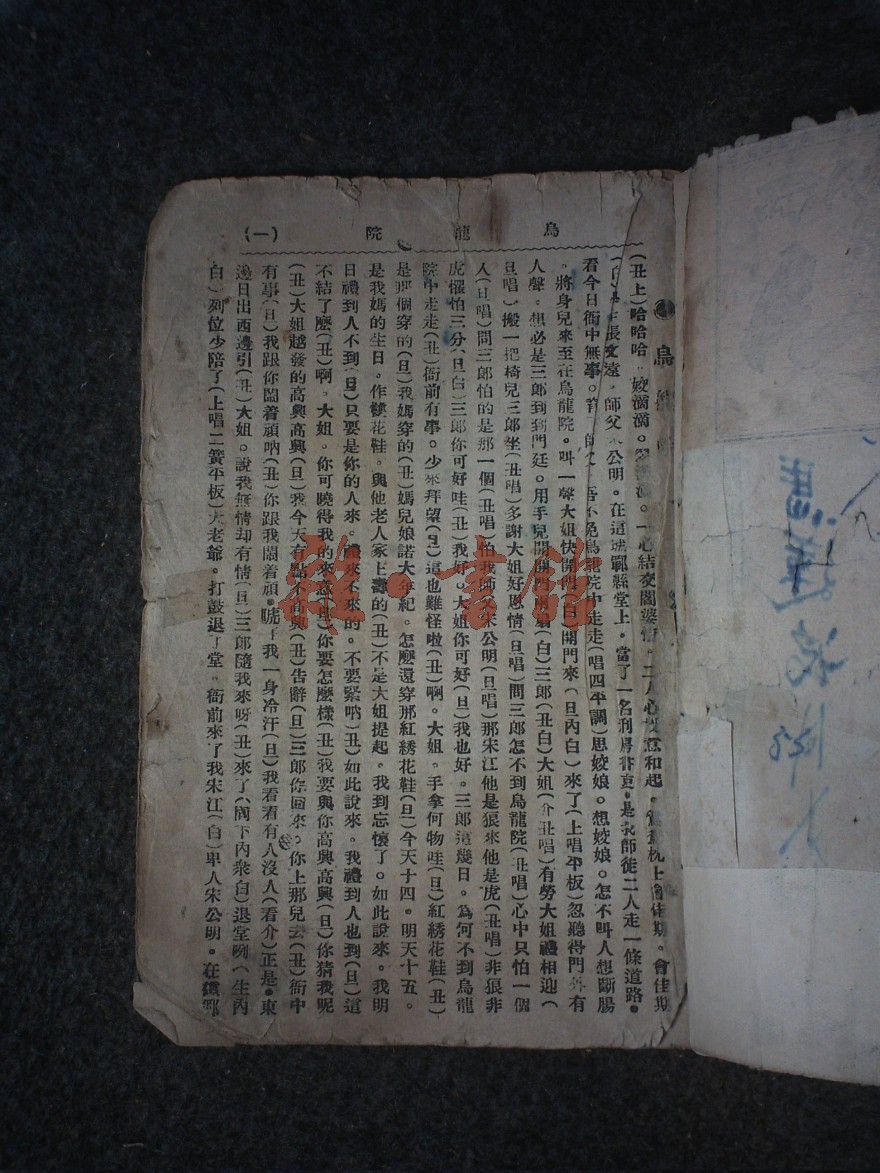 烏龍院 (一)
烏
(丑上)哈哈哈 姣滴滴。一心結交閻婆惜。二人心意和起。枕上會佳期。會佳期
張文遠。師父 公明。在這鄆縣堂上。當了一名刑房書吏。是我師徒二人走一條道路。
看今日衙中無事。不免烏龍院中走走(唱四平調)思姣娘。想姣娘。怎不叫人想斷腸
。將身兒來至在烏龍院。叫一聲大姐快開門(白)開門來(旦內白)來了(上唱平板)忽聽得門外有
人聲。想必是三郎到到門廷。用手兒開開門兩扇(白)三郎(丑白)大姐(介丑唱)有勞大姐禮相迎(
旦唱)搬一把椅兒三郎坐(丑唱)多謝大姐好恩情(旦唱)問三郎怎不到烏龍院(丑唱)心中只怕一個
人(旦唱)問三郎怕的是那一個(丑唱)怕我師父宋公明(旦唱)那宋江他是狼來他是虎(丑唱)非狼非
虎懼怕三分(旦白)三郎你可好哇(丑)我好。大姐你可好(旦)我也好。三郎這幾日。為何不到烏龍
院中走走(丑)衙前有事。少來拜望(旦)這也難怪啦(丑)啊。大姐。手拿何物哇(旦)紅綉花鞋(丑)
是那個穿的(旦)我媽穿的(丑)媽兒娘諾大年紀。怎麼還穿那紅綉花鞋(旦)今天十四。明天十五。
是我媽的生日。作雙花鞋。與他老人家上壽的(丑)不是大姐提起。我到忘懷了。如此說來。我明
日禮到人不到(旦)只要是你的人來。禮來不來的。不要緊吶(丑)如此說來。我禮到人也到(旦)這
不結了麼(丑)啊。大姐。你可曉得我的來意(旦)你要怎麼樣(丑)我要與你高興高興(旦)你猜我呢
(丑)大姐越發的高興高興(旦)我今天有點不高興(丑)告辭(旦)三郎你回來。你上那兒去(丑)衙中
有事(旦)我跟你鬧着頑吶(丑)你跟我鬧着頑。唬了我一身冷汗(旦)我看看有人沒人(看介)正是。東
邊日出西邊引(丑)大姐。說我無情却有情(旦)三郎隨我來呀(丑)來了(同下內衆白)退堂咧(生內
白)列位少陪了(上唱二簧平板)大老爺。打鼓退了堂。衙前來了我宋江(白)卑人宋公明。在鄆
雜·書館